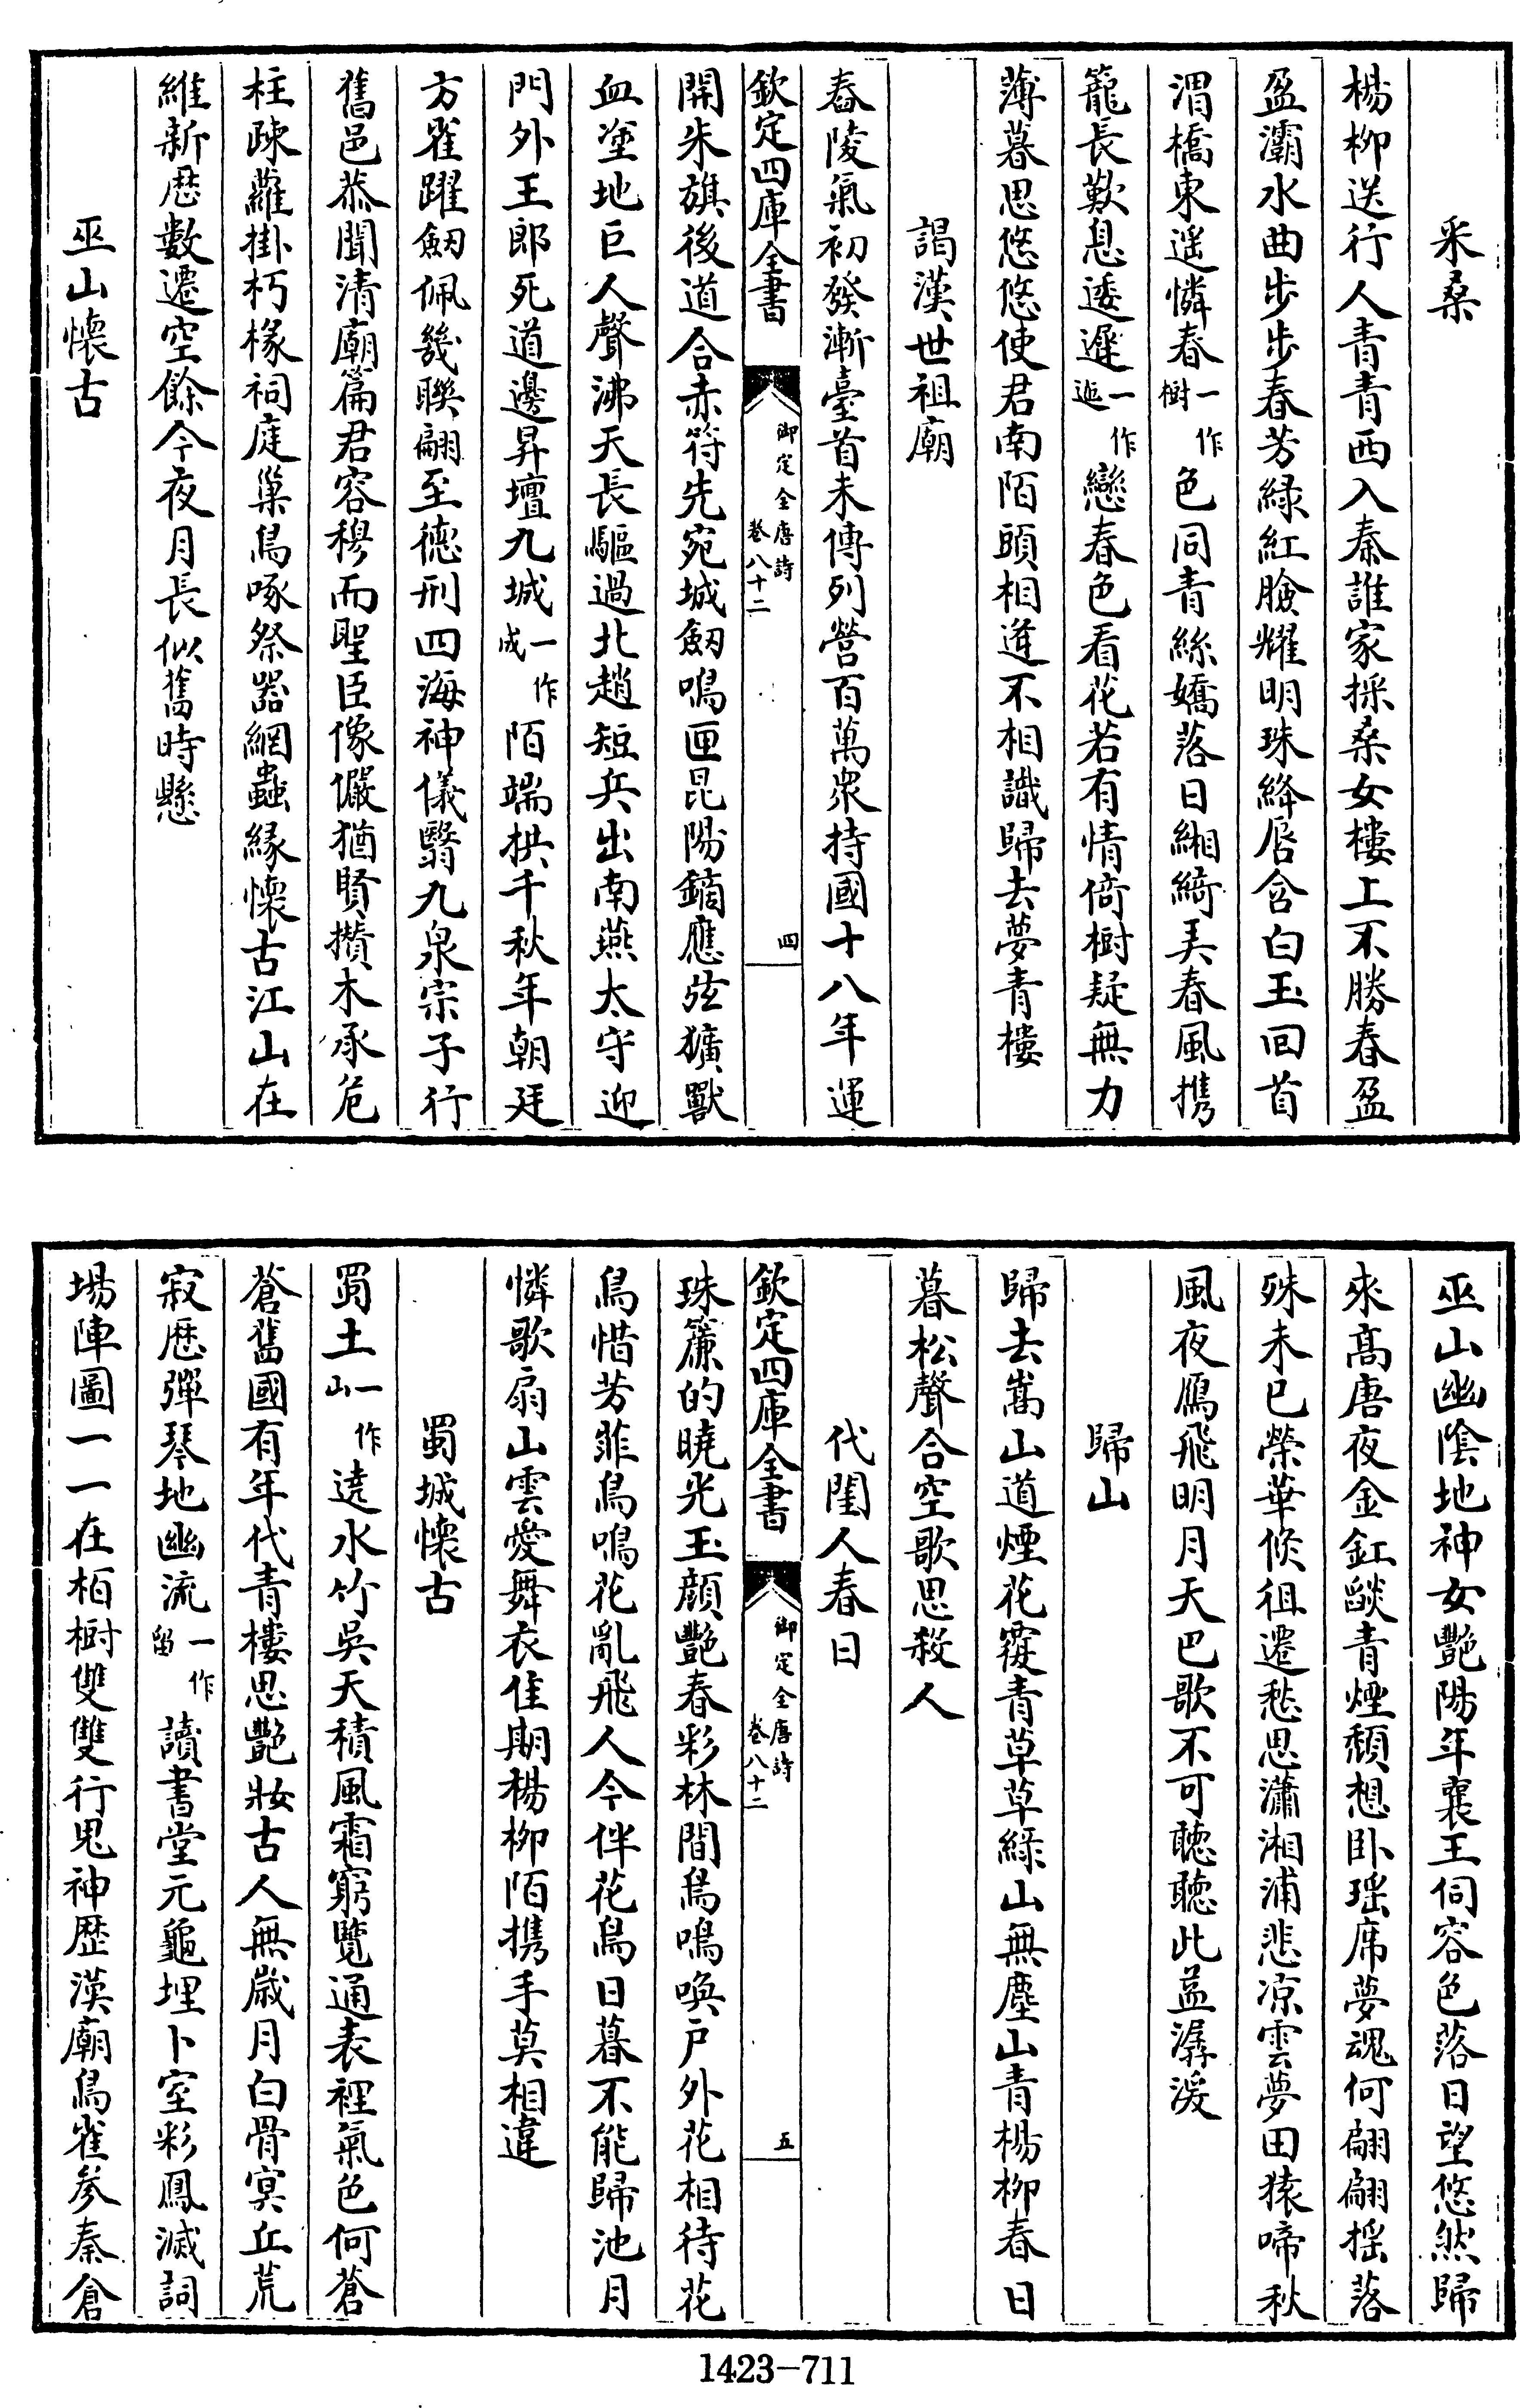 采桑
楊柳送行人青青西入秦誰家採桑女樓上不勝春盈
盈灞水曲步步春芳綠紅臉耀明珠絳唇含白玉回首
渭橋東遥憐春一作樹色同青絲嬌落日緗綺弄春風携
籠長歎息逶遲一作迤戀春色看花若有情倚樹疑無力
薄暮思悠悠使君南陌頭相逢不相識歸去夢青樓
謁漢世祖廟
舂陵氣初發漸臺首未傳列營百萬衆持國十八年運
欽定四庫全書
御定全唐詩
卷八十二
四
開朱旗後道合赤符先宛城劒鳴匣昆陽鏑應弦獷獸
血塗地巨人聲沸天長驅過北趙短兵出南燕太守迎
門外王郎死道邊昇壇九城一作成陌端拱千秋年朝廷
方雀躍劒佩幾聯翩至德刑四海神儀翳九泉宗子行
舊邑恭聞清廟篇君容穆而聖臣像儼猶賢攢木承危
柱疎蘿掛朽椽祠庭巢鳥啄祭器網蟲緣懷古江山在
維新歴數遷空餘今夜月長似舊時懸
巫山懷古
巫山幽陰地神女艷陽年襄王伺容色落日望悠然歸
來髙唐夜金釭燄青煙頹想卧瑶席夢魂何翩翩揺落
殊未已榮華倏徂遷愁思瀟湘浦悲凉雲夢田猿啼秋
風夜鴈飛明月天巴歌不可聴聴此益潺湲
歸山
歸去嵩山道煙花覆青草草綠山無塵山青楊柳春日
暮松聲合空歌思殺人
代閨人春日
欽定四庫全書
御定全唐詩
卷八十二
五
珠簾的曉光玉顔艷春彩林間鳥鳴喚戶外花相待花
鳥惜芳菲鳥鳴花亂飛人今伴花鳥日暮不能歸池月
憐歌扇山雲愛舞衣佳期楊柳陌携手莫相違
蜀城懷古
蜀土一作山遶水竹吳天積風霜窮覽通表裡氣色何蒼
蒼舊國有年代青樓思艷妝古人無歲月白骨冥丘荒
寂歴彈琴地幽流一作留讀書堂元龜埋卜室彩鳳滅詞
場陣圖一一在栢樹雙雙行鬼神歴漢廟鳥雀參秦倉
1423-711